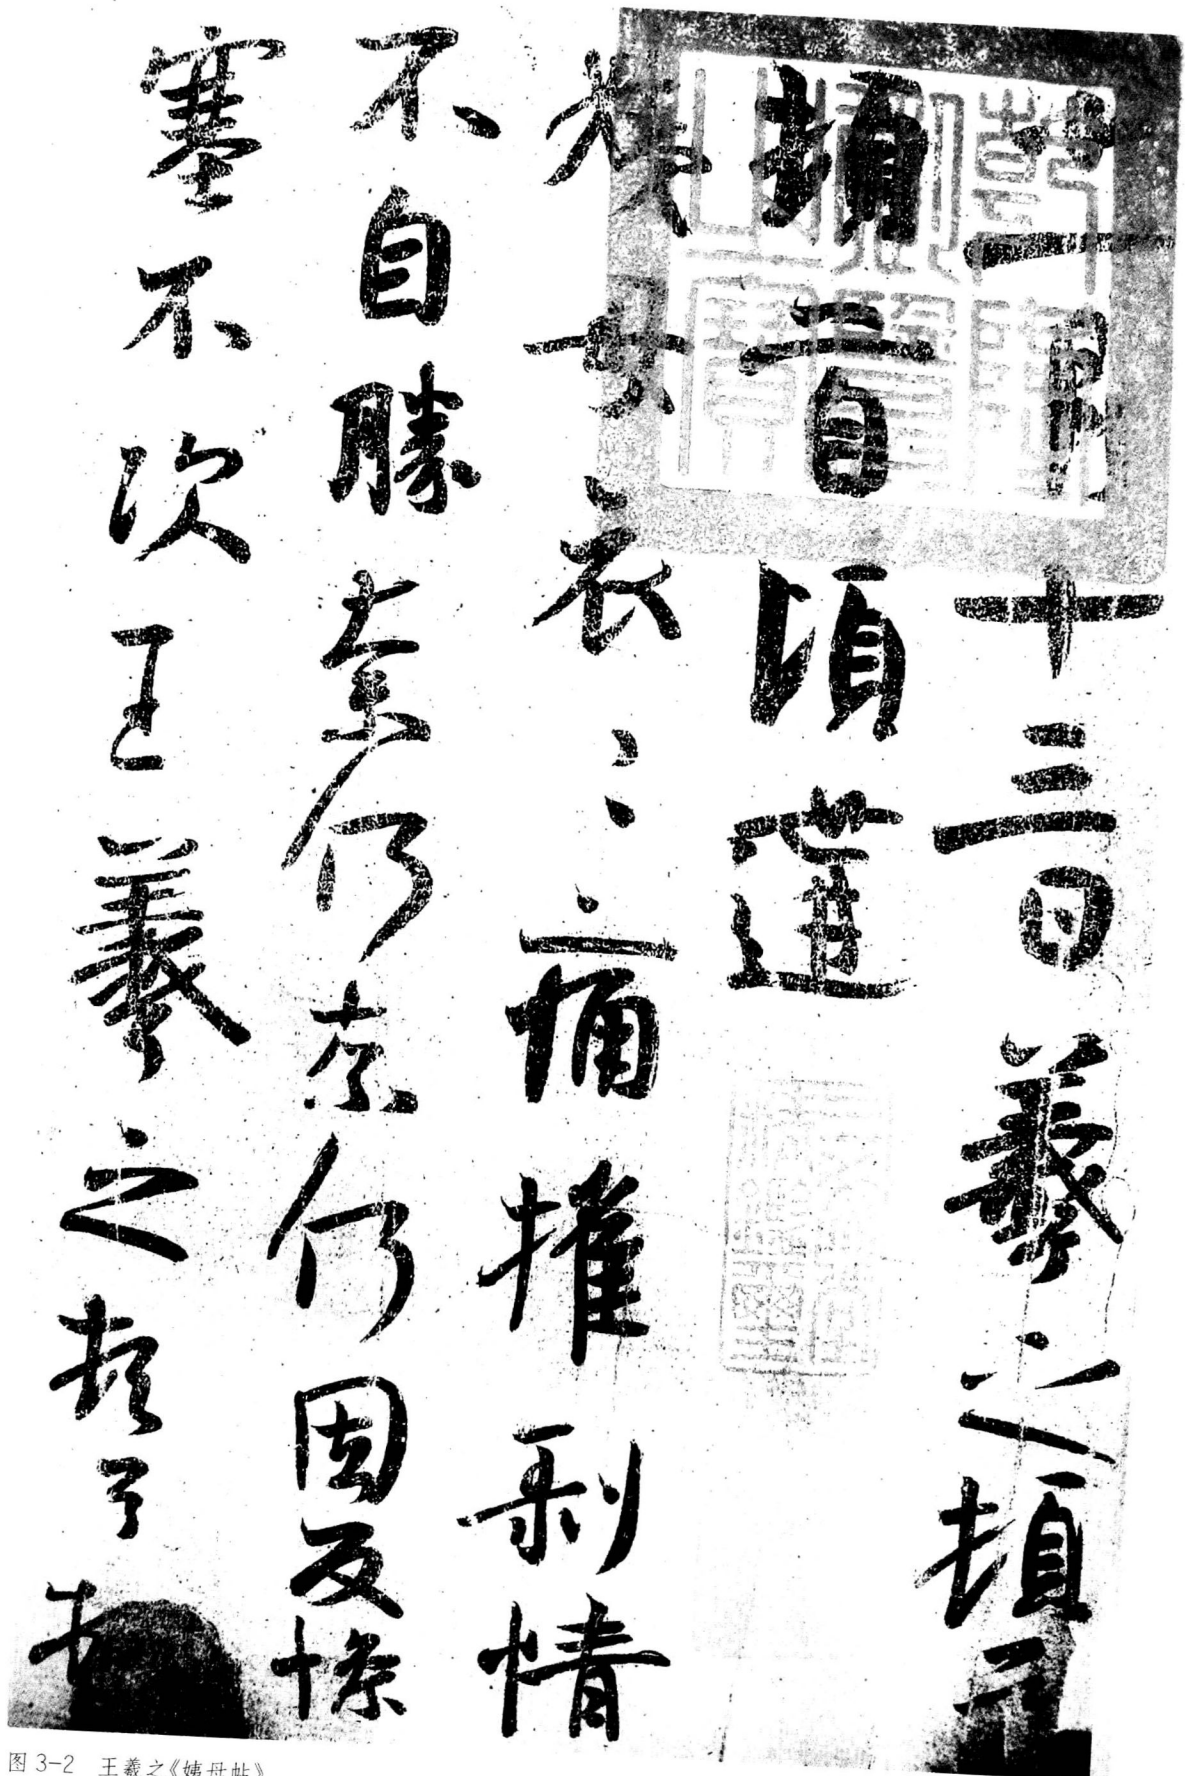 十一月十三日羲之頓首
頓首頃遘
姨母哀〻痛摧剥情
不自勝奈何奈何因反慘
塞不次王羲之頓首頓
图 3-2 王羲之《姨母帖》